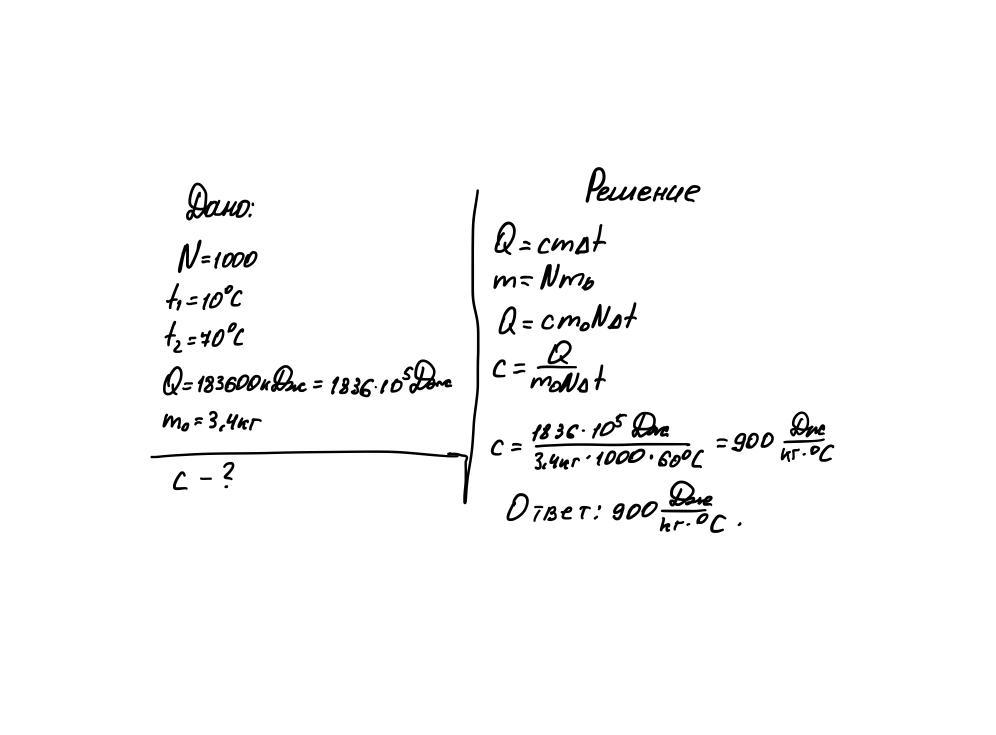 Дано:
N=1000
t₁=10°C
t₂=70°C
Q=183600кДж = 1836·10⁵Дж
m₀=3,4кг
c - ?
Решение
Q=cmΔt
m=Nm₀
Q=cm₀NΔt
c = Q/(m₀NΔt)
c = (1836·10⁵ Дж)/(3,4кг·1000·60°C) = 900 Дж/(кг·°C)
Ответ: 900 Дж/(кг·°C).